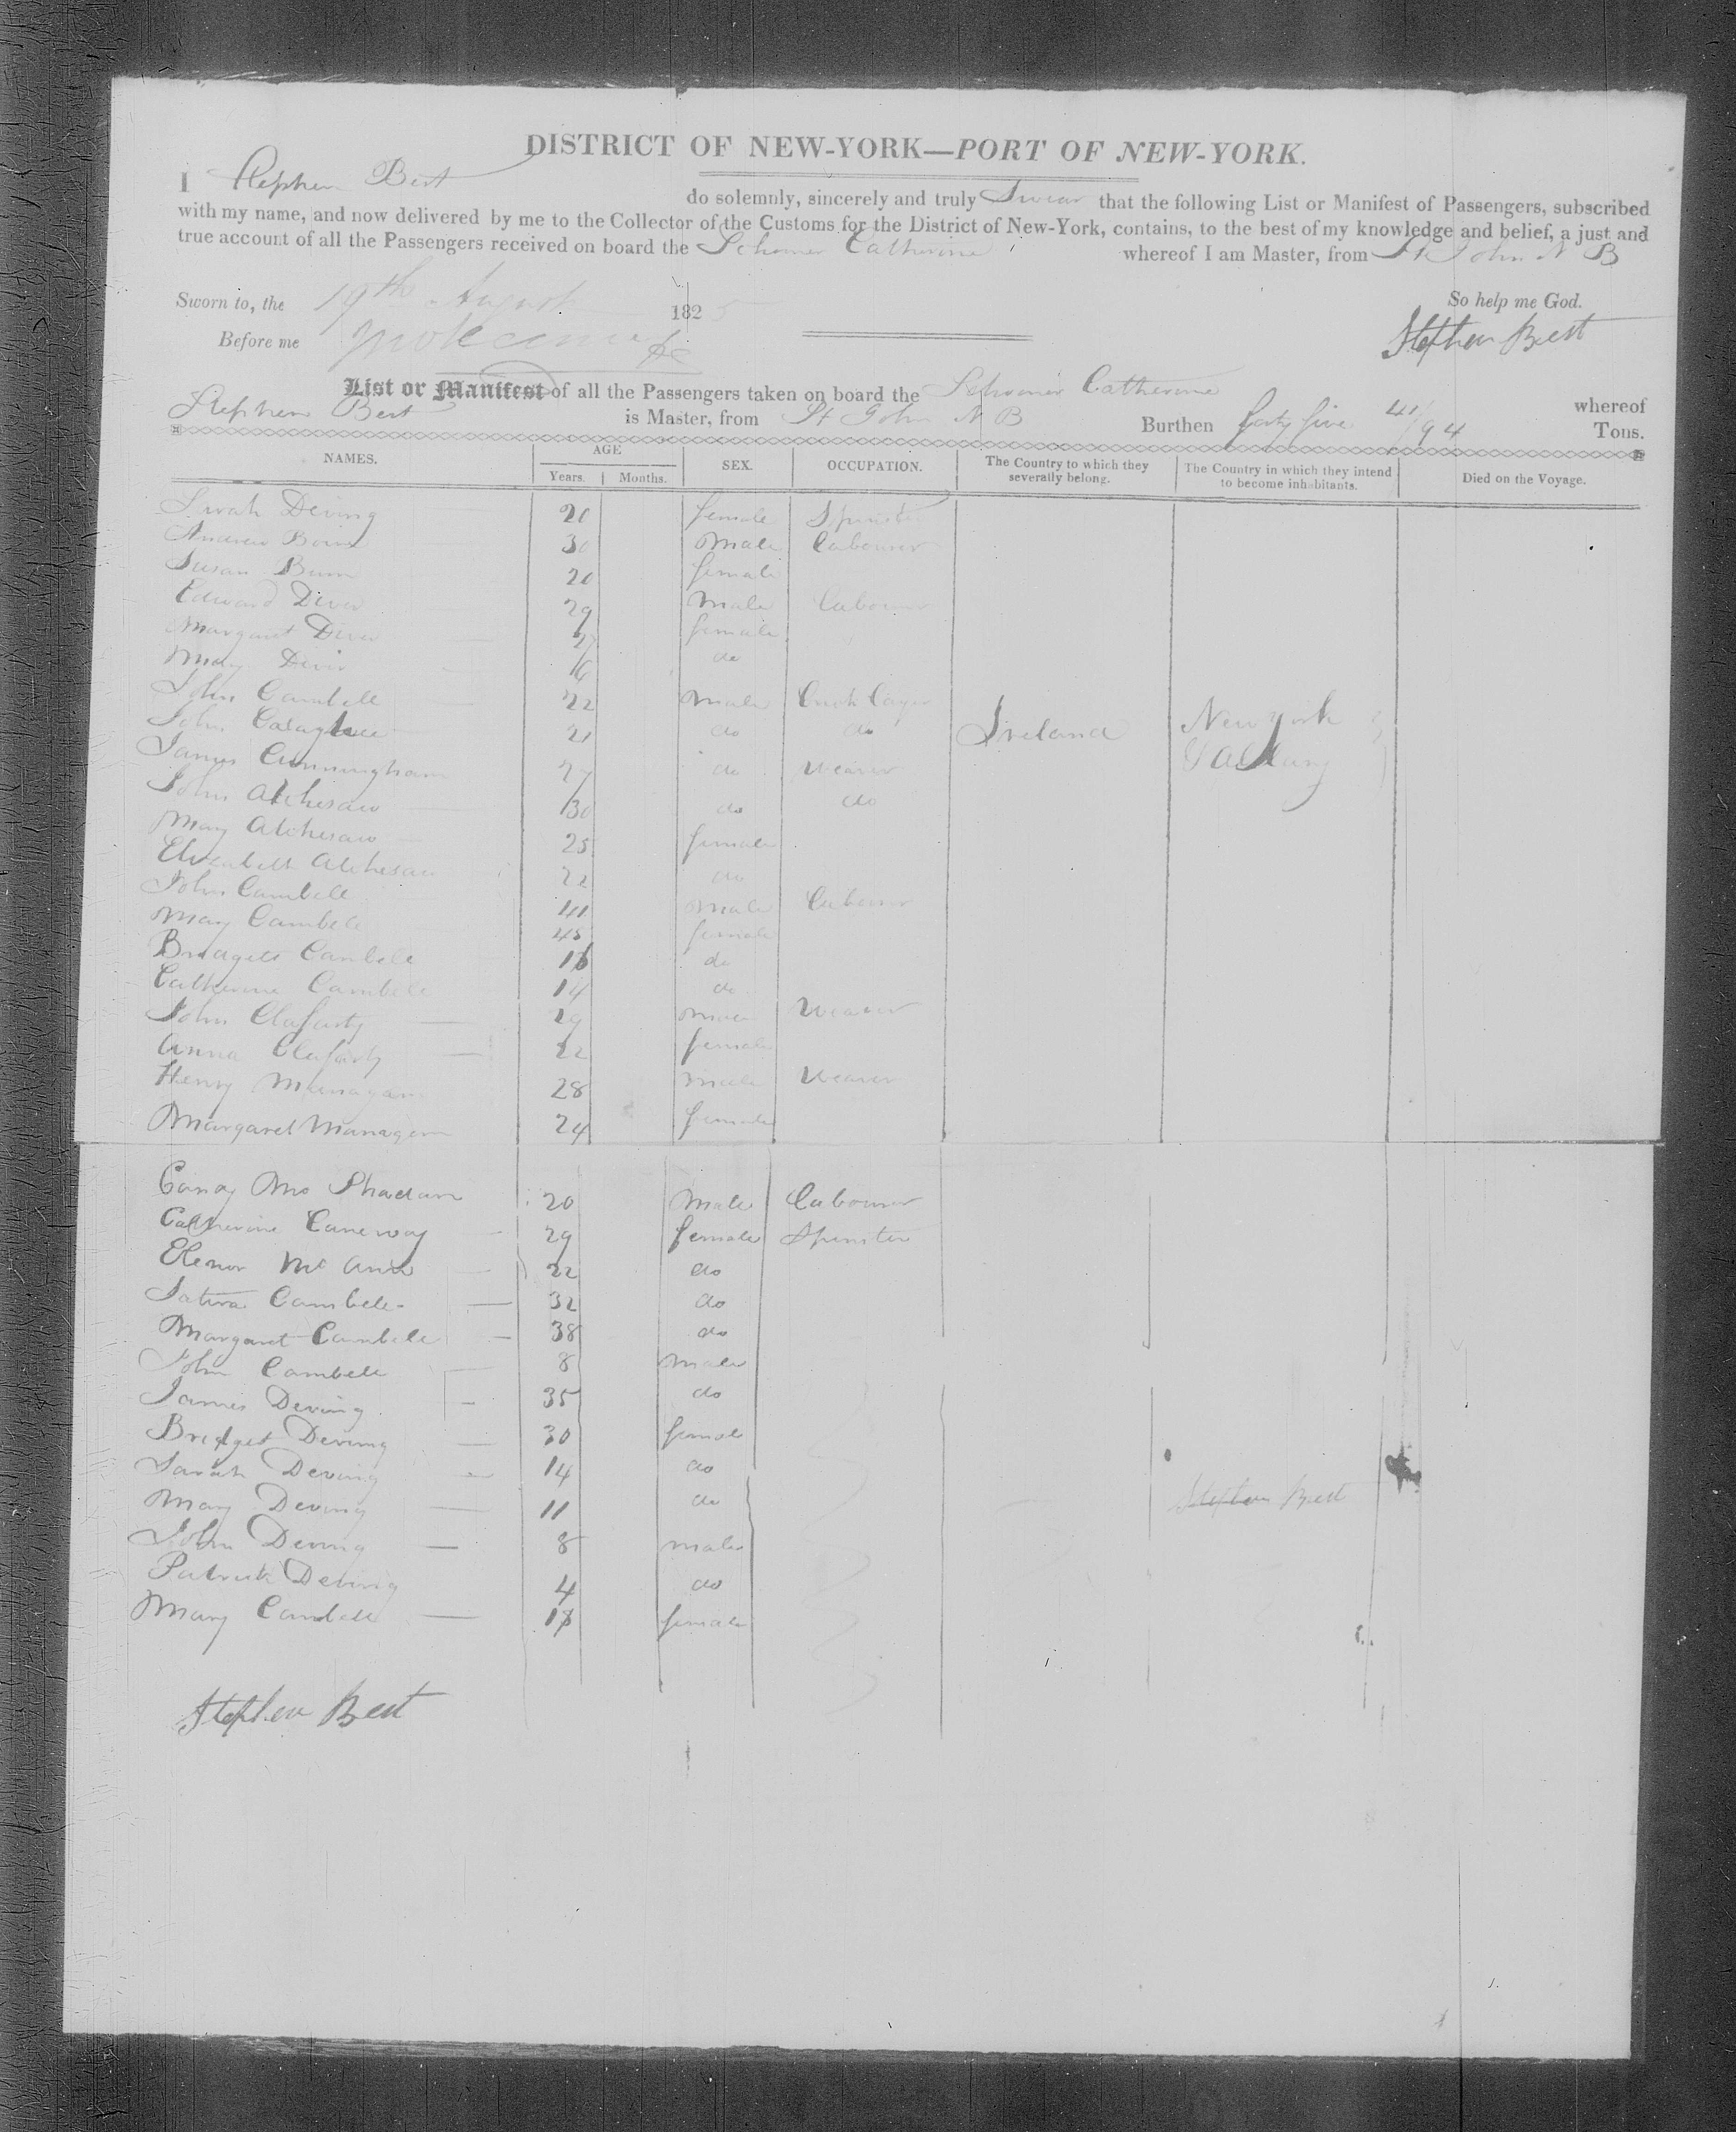 DISTRICT OF NEW-YORK—PORT OF NEW-YORK.
I Stephen Best do solemnly, sincerely and truly Swear that the following List or Manifest of Passengers, subscribed
with my name, and now delivered by me to the Collector of the Customs for the District of New-York, contains, to the best of my knowledge and belief, a just and
true account of all the Passengers received on board the Schooner Catherine whereof I am Master, from St John N B
Sworn to, the 19th August 1825 So help me God.
Before me Stephen Best
List or Manifest of all the Passengers taken on board the Schooner Catherine whereof
Stephen Best is Master, from St John N B Burthen forty five 41/94 Tons.
NAMES. AGE Years. Months. SEX. OCCUPATION. The Country to which they severally belong. The Country in which they intend to become inhabitants. Died on the Voyage.
Sarah Deving 20 female Spinster
Andrew 30 Male Labourer
Susan 20 female
Edward Diver 29 Male Labourer
Margaret Diver 27 female
Mary Diver 16 do
John Cambell 22 Male
John Galaghu 21 do do Ireland New York
James Cunningham 27 do Weaver & Albany
John Atchesaw 30 do do
May Atchesaw 25 female
Elizabeth Atchesaw 22 do
John Cambell 41 Male Labourer
May Cambell 45 female
Bridgett Cambell 16 do
Catherine Cambell 14 do
John Clafarty 29 Male Weaver
Anna Clafarty 22 female
Henry Managam 28 Male Weaver
Margaret Managem 24 female
Mc 20 Male Labourer
Catherine Caneway 29 female Spinster
Elenor Mc 22 do
Cambell 32 do
Margaret Cambell 38 do
John Cambell 8 male
James Deving 35 do
Bridget Deving 30 female
Sarah Deving 14 do
May Deving 11 do Stephen Best
John Deving 8 male
Patrick Deving 4 do
Mary Cambell 18 female
Stephen Best